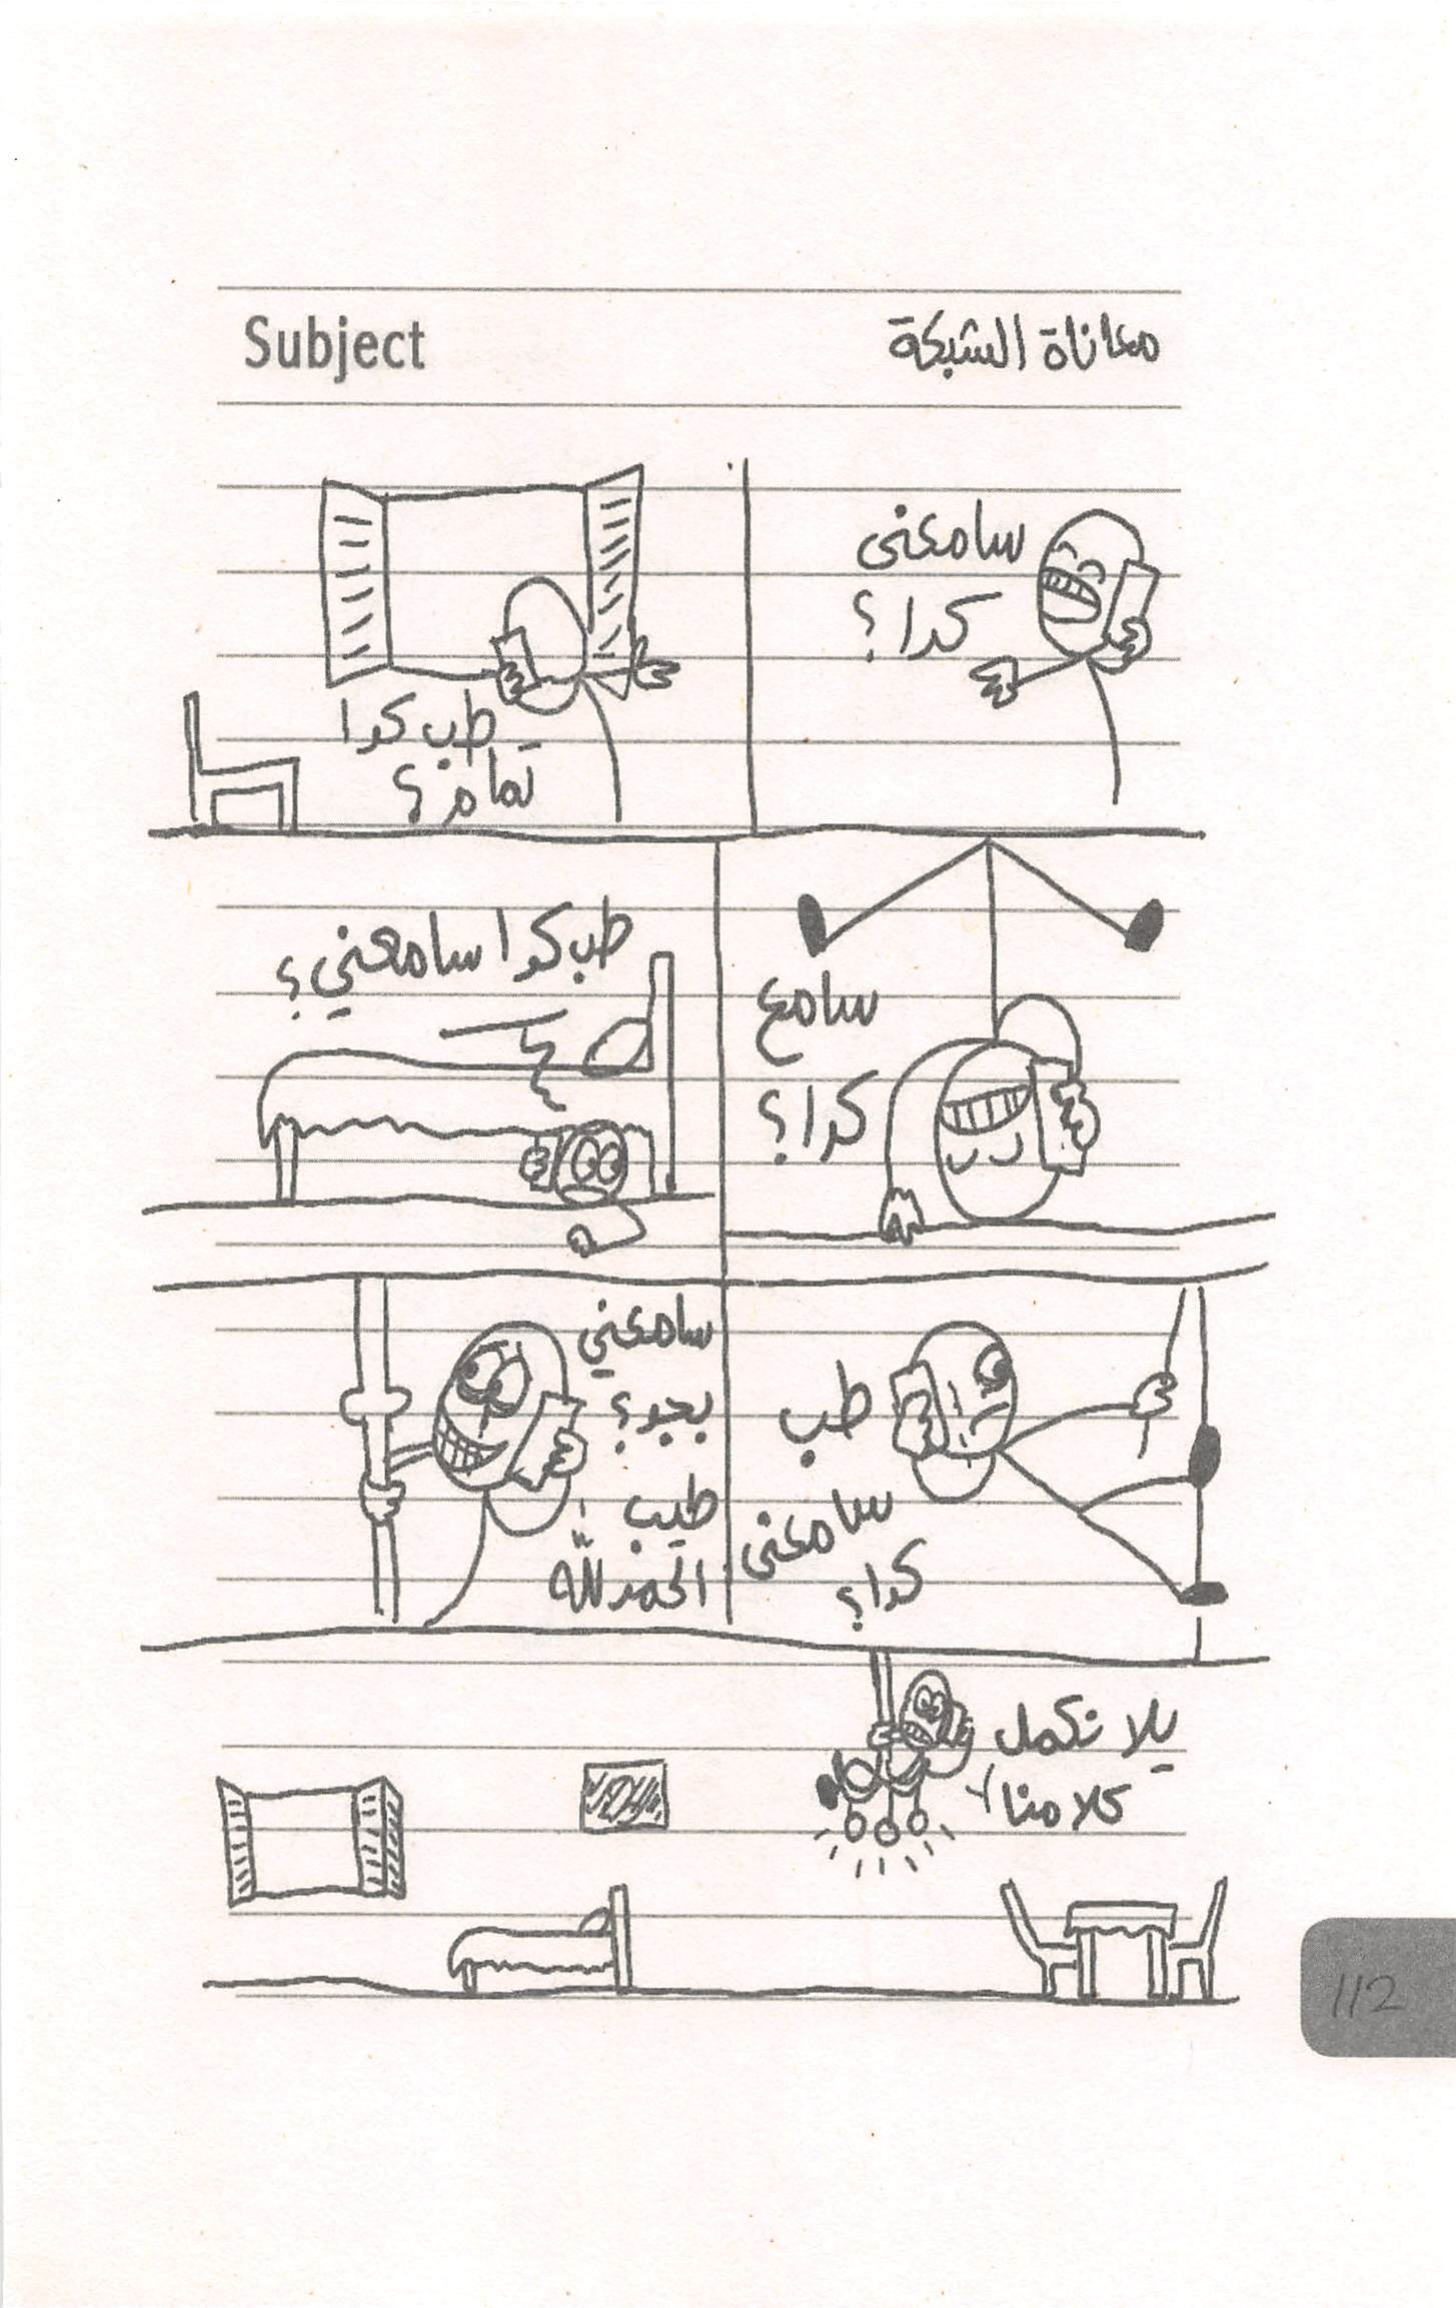 Subject
معاناة الشبكة
سامعنى
كدا؟
طب كدا
تمام؟
سامع
كدا؟
طب كدا سامعني؟
طب
سامعنى
كدا؟
سامعني
بجد؟
طيب
الحمدلله
يلا نكمل
كلامنا
112